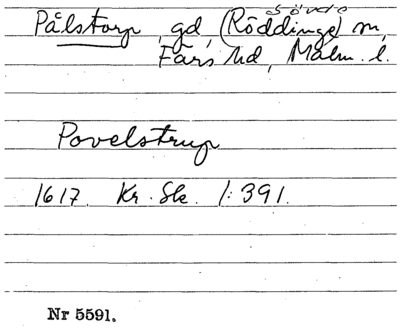 Sövde
Pålstorp, gd, (Röddinge) sn,
Färs hd, Malm. l.
Povelstrup
1617. Kr. Sk. 1:391.
Nr 5591.